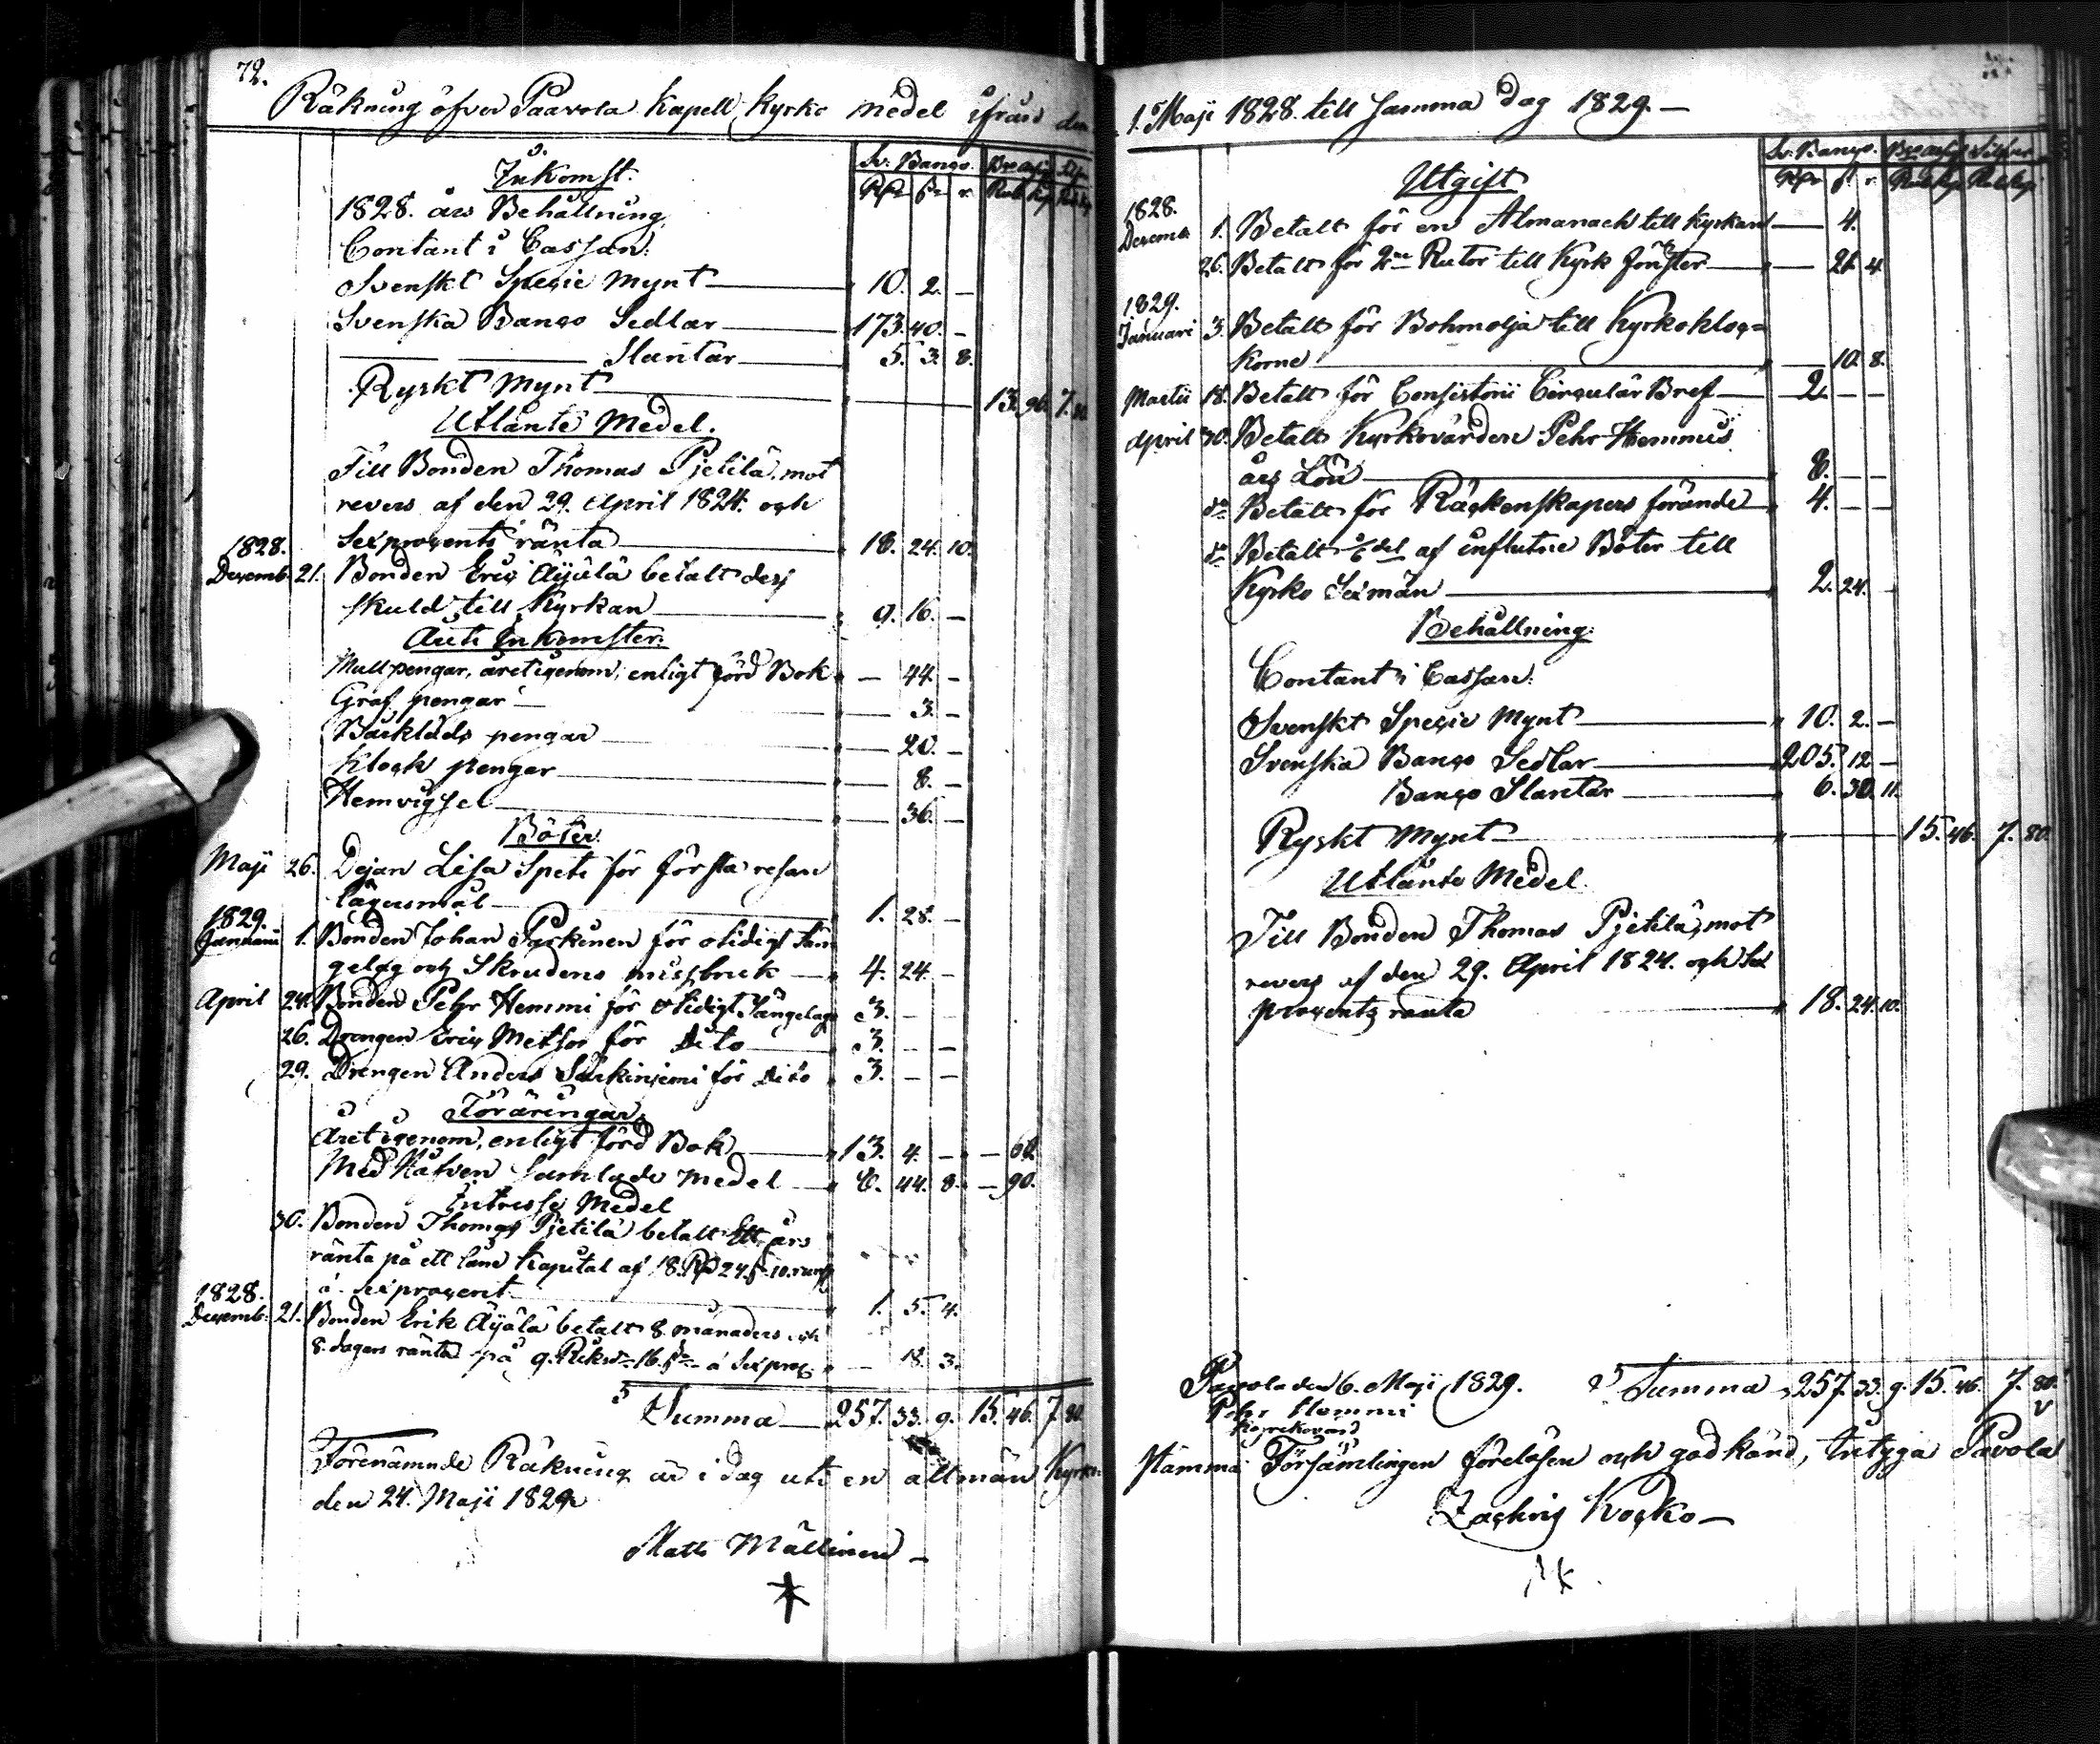 72.
Räkning öfver Paavola Kapell Kyrko medel ifrån den
Inkomst.
Sv: Banco. Bco assig Silf
Rdr sk r. Rub. Kp Rub Kp
1828. års Behållning
Contant i Cassan:
Svenskt Specie Mynt 10. 2. —
Svenska Banco Sedlar 173. 40. —
— — Slantar 5. 3. 8.
Ryskt Mynt 13. 96. 7. 80
Utlånte Medel.
Till Bonden Thomas Pjetilä, mot
revers af den 29. April 1824. och
Sexprocents ränta 18. 24. 10.
1828.
Decemb. 21. Bonden Eric Äijälä betalt dess
skuld till Kyrkan 9. 16. —
Årets Inkomster:
Mullpengar, åretigenom, enligt förd Bok — 44. —
Graf pengar — 3. —
Bårkläds pengar — 20. —
Klock pengar — 8. —
Hemvigsel 36. —
Böter.
Maji 26. Dejan Lisa Speti för första resan
lägersmål 1. 28. —
1829.
Januarii 1. Bonden Johan Parkinen för otidigt Sän
gelag och Skrudens missbruk 4. 24. —
April 24. Bonden Pehr Hemmi för otidigt Sängelag 3. — —
26. Drengen Eric Metso för dito 3. — —
29. Drengen Anders Särkiniemi för dito 3. — —
Föräringar.
Året igenom, enligt förd Bok 13. 4. — — 60.
Med Håfven Samlade medel 6. 44. 8. — 90.
Intresse Medel
30. Bonden Thomas Pjetilä betalt Ett års
ränta på ett lånt Kapital af 18. Rdr 24. sk 10. runst
à Sexprocent 1. 5. 4.
1828.
Decemb: 21. Bonden Erik Äijälä betalt 8. månaders och
8. dagars ränta på 9. Riksdr 16. sk à Sexproc: — 18. 3.
Summa 257. 33. 9. 15. 46. 7. 80.
Förenämnde Räkning är i dag uti en allmän Kyrko
den 24. Maji 1829.
Matts Mällinen
1. Maji 1828. till samma dag 1829.
Utgift
Sv: Banco. Bco assig Silfver
Rdr sk r. Rub. Kp Rub. Kp
1828.
Decemb. 1. Betalt för en Almanach till Kyrkan — 4.
26. Betalt för 2ne Rutor till Kyrk fönster — 21. 4.
1829.
Januari 3. Betalt för Bohmolja till Kyrkokloc=
korne — 10. 8.
Martii 18. Betalt för Consistorii Circulär Bref 2. — —
April 30. Betalt Kyrkovärden Pehr Hemmis
års Lön 8. — —
do Betalt för Räckenskapers förande 4. — —
do Betalt 1/6 del af influtne Böter till
Kyrko Sexmän 2. 24. —
Behållning:
Contant i Cassan:
Svenskt Specie Mynt 10. 2. —
Svenska Banco Sedlar 205. 12 —
Banco Slantar 6. 30. 11.
Ryskt Mynt 15. 46. 7. 80.
Utlånte Medel.
Till Bonden Thomas Pjetilä, mot
revers af den 29. April 1824. och Sex
procents ränta 18. 24. 10.
Pavola den 6. Maji 1829. Summa 257. 33. 9. 15. 46. 7. 80.
Pehr Hemmi
Kyrkovärd
stämma Församlingen föreläsen och godkänd, intyga Pavola
Zachris Kocko